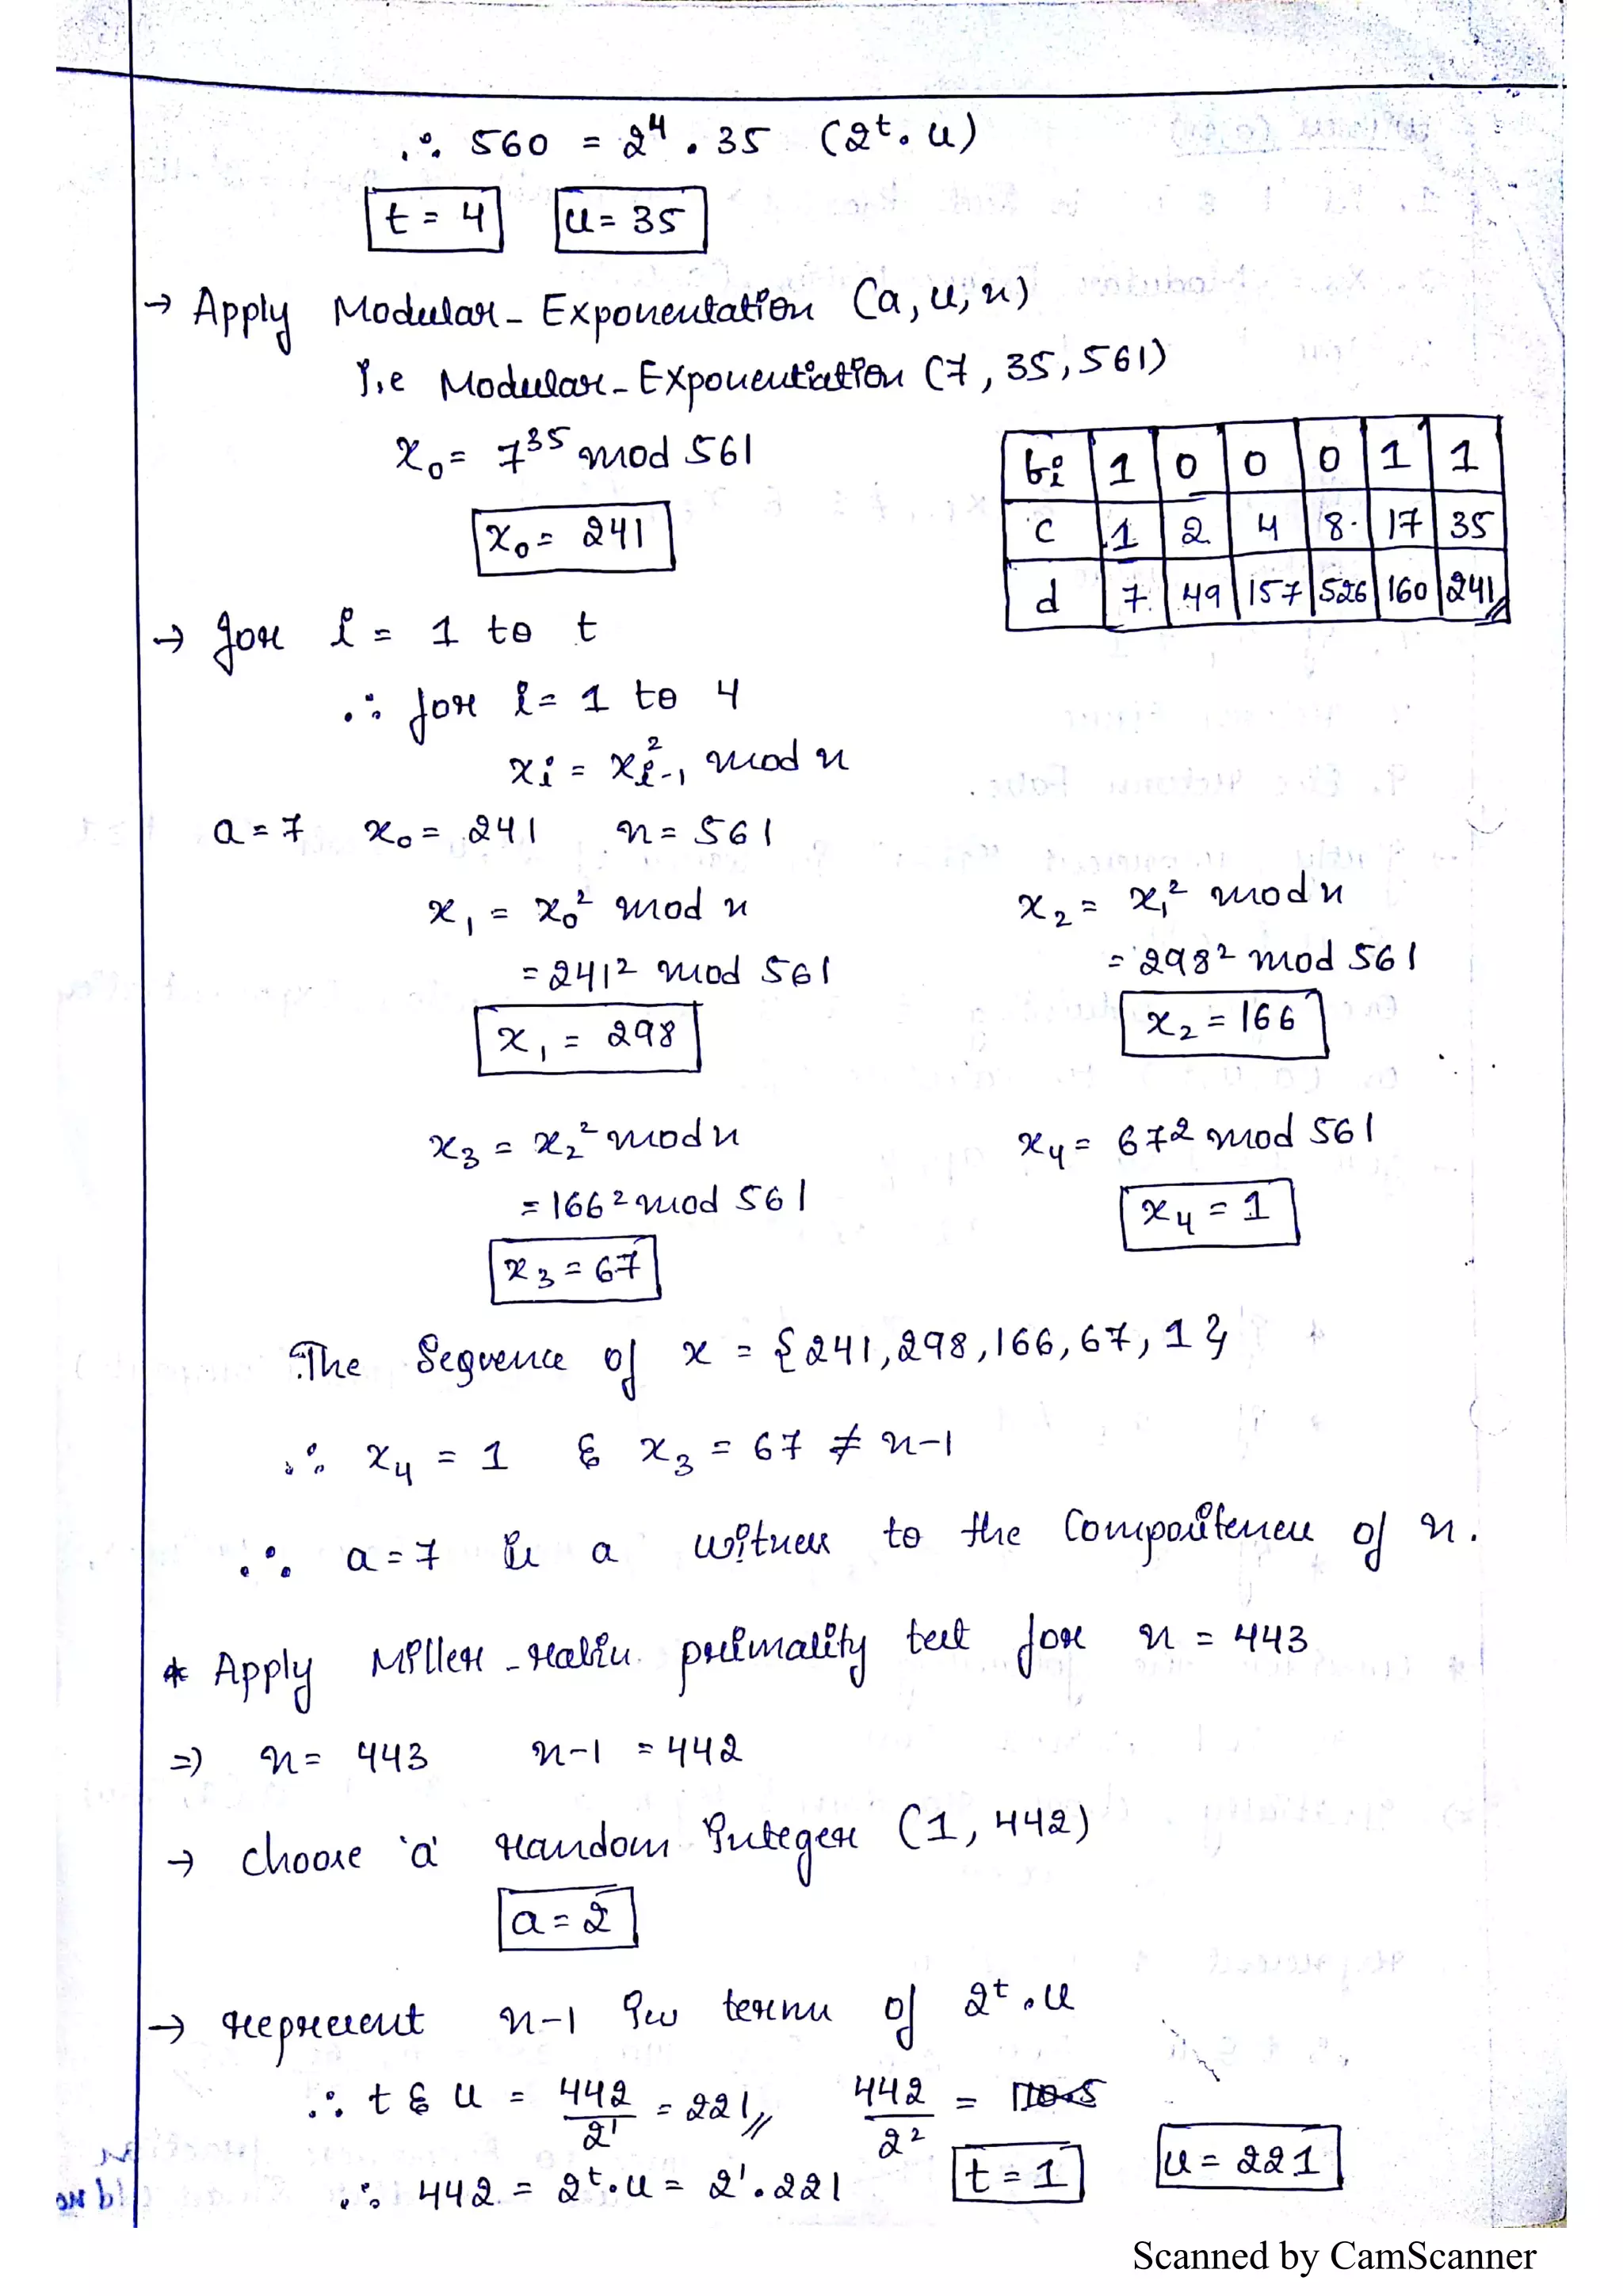 ∴ 560 = 2⁴ . 35 (2ᵗ. u)
t = 4 u = 35
→ Apply Modular - Exponentation (a, u, n)
i.e Modular - Exponentiation (7, 35, 561)
x₀ = 7³⁵ mod 561
bi 1 0 0 0 1 1
x₀ = 241
c 1 2 4 8 17 35
d 7 49 157 526 160 241
→ for i = 1 to t
∴ for i = 1 to 4
xᵢ = x²ᵢ₋₁ mod n
a = 7 x₀ = 241 n = 561
x₁ = x₀² mod n x₂ = x₁² mod n
= 241² mod 561 = 298² mod 561
x₁ = 298 x₂ = 166
x₃ = x₂² mod n x₄ = 67² mod 561
= 166² mod 561 x₄ = 1
x₃ = 67
The Sequence of x = {241, 298, 166, 67, 1}
∴ x₄ = 1 & x₃ = 67 ≠ n-1
∴ a = 7 is a witness to the Compositeness of n.
* Apply Miller - rabin primality test for n = 443
⇒ n = 443 n-1 = 442
→ choose 'a' random integer (1, 442)
a = 2
→ represent n-1 in terms of 2ᵗ . u
∴ t & u = 442/2¹ = 221 442/2² = 110.5
∴ 442 = 2ᵗ. u = 2¹ . 221 t = 1 u = 221
Scanned by CamScanner